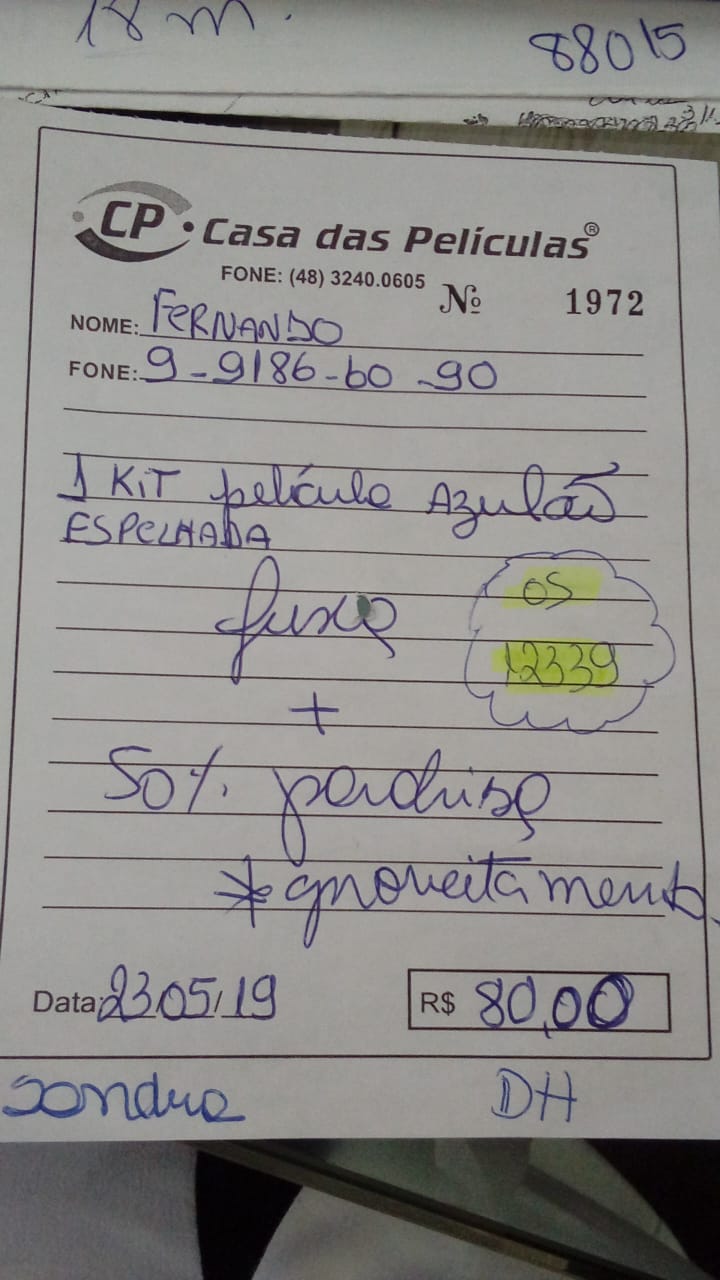 18 m.
88015
CP Casa das Películas®
FONE: (48) 3240.0605
Nº 1972
NOME: FERNANDO
FONE: 9-9186-60-90
1 KIT película AZulão
ESPELHADA
OS
12339
+
50%
*aproveitamento.
Data: 23/05/19
R$ 80,00
Sandra
DH